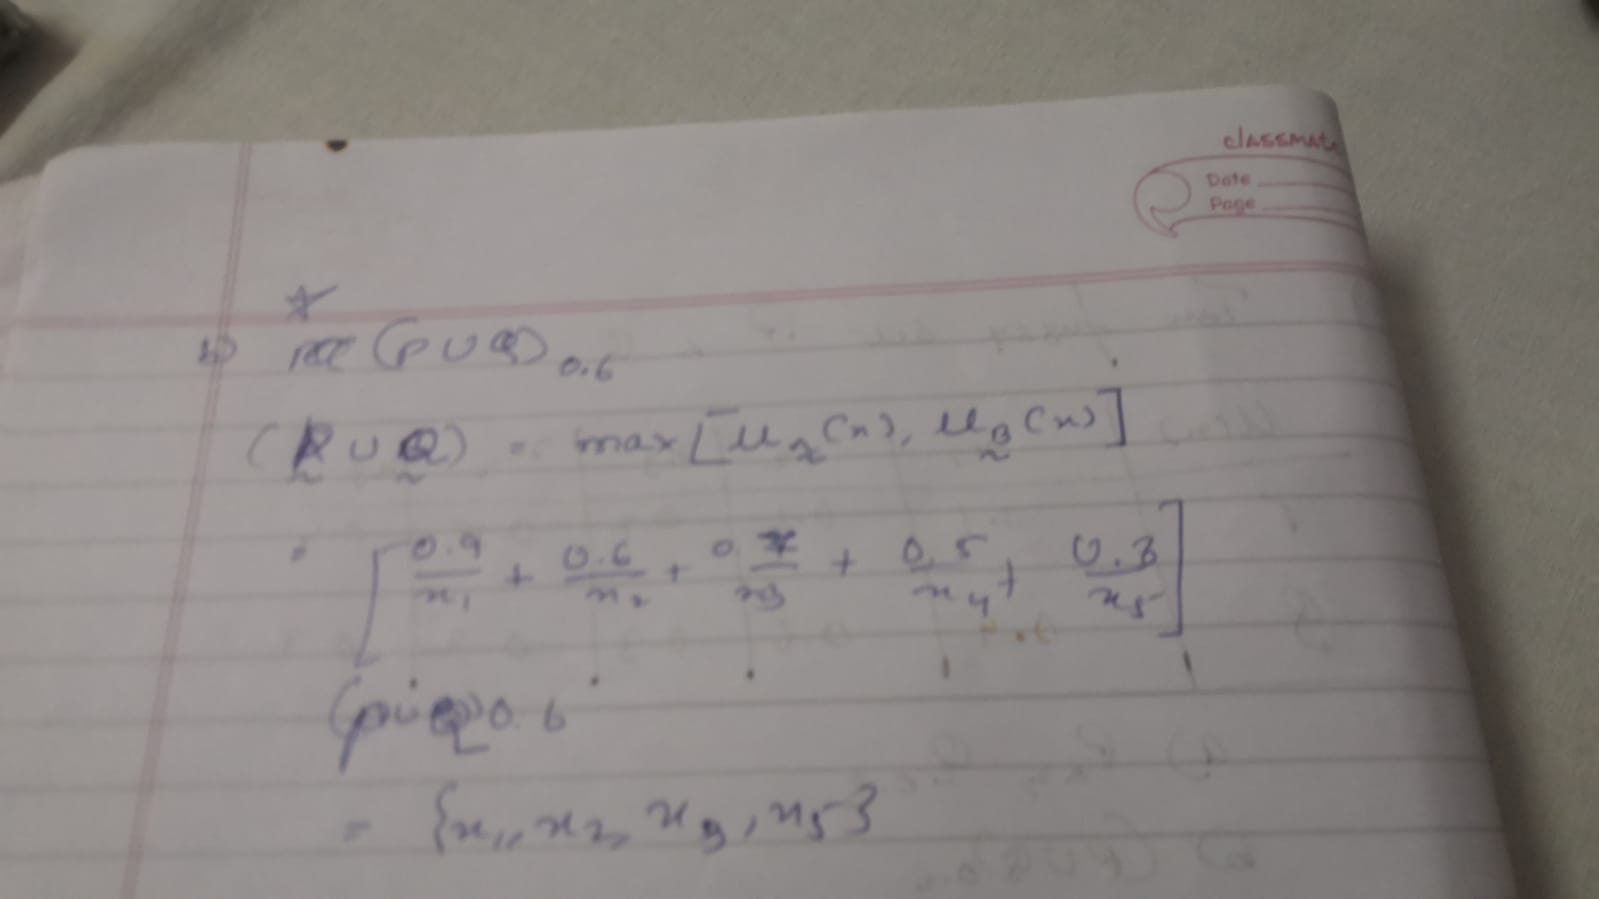 classmate
Date
Page
b) (P ∪ Q)0.6
(P ∪ Q) = max [μA(x), μB(x)]
= [0.9/x1 + 0.6/x2 + 0.7/x3 + 0.5/x4 + 0.8/x5]
(P∪Q)0.6
= {x1, x2, x3, x5}